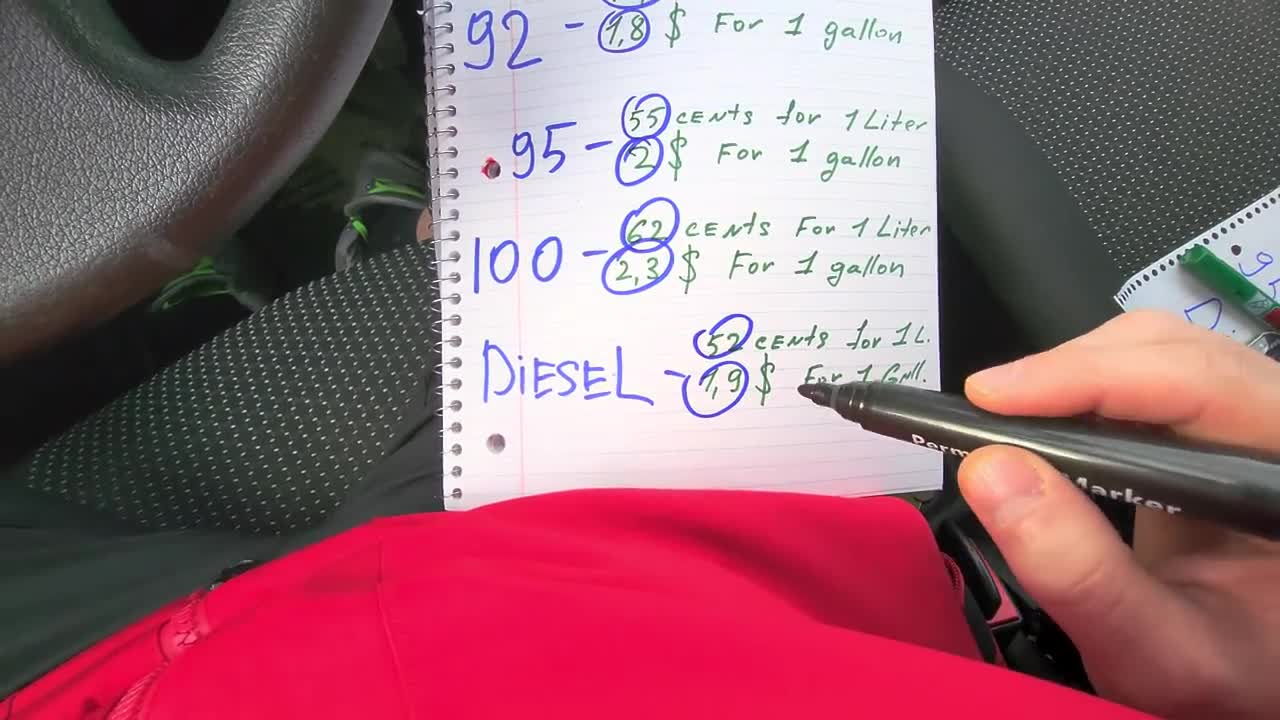 92 - 1,8 $ For 1 gallon
55 cents for 1 Liter
95 - 2 $ For 1 gallon
62 cents For 1 Liter
100 - 2,3 $ For 1 gallon
52 cents for 1 L.
DiESEL - 1,9 $ For 1 Gall.
Marker
95